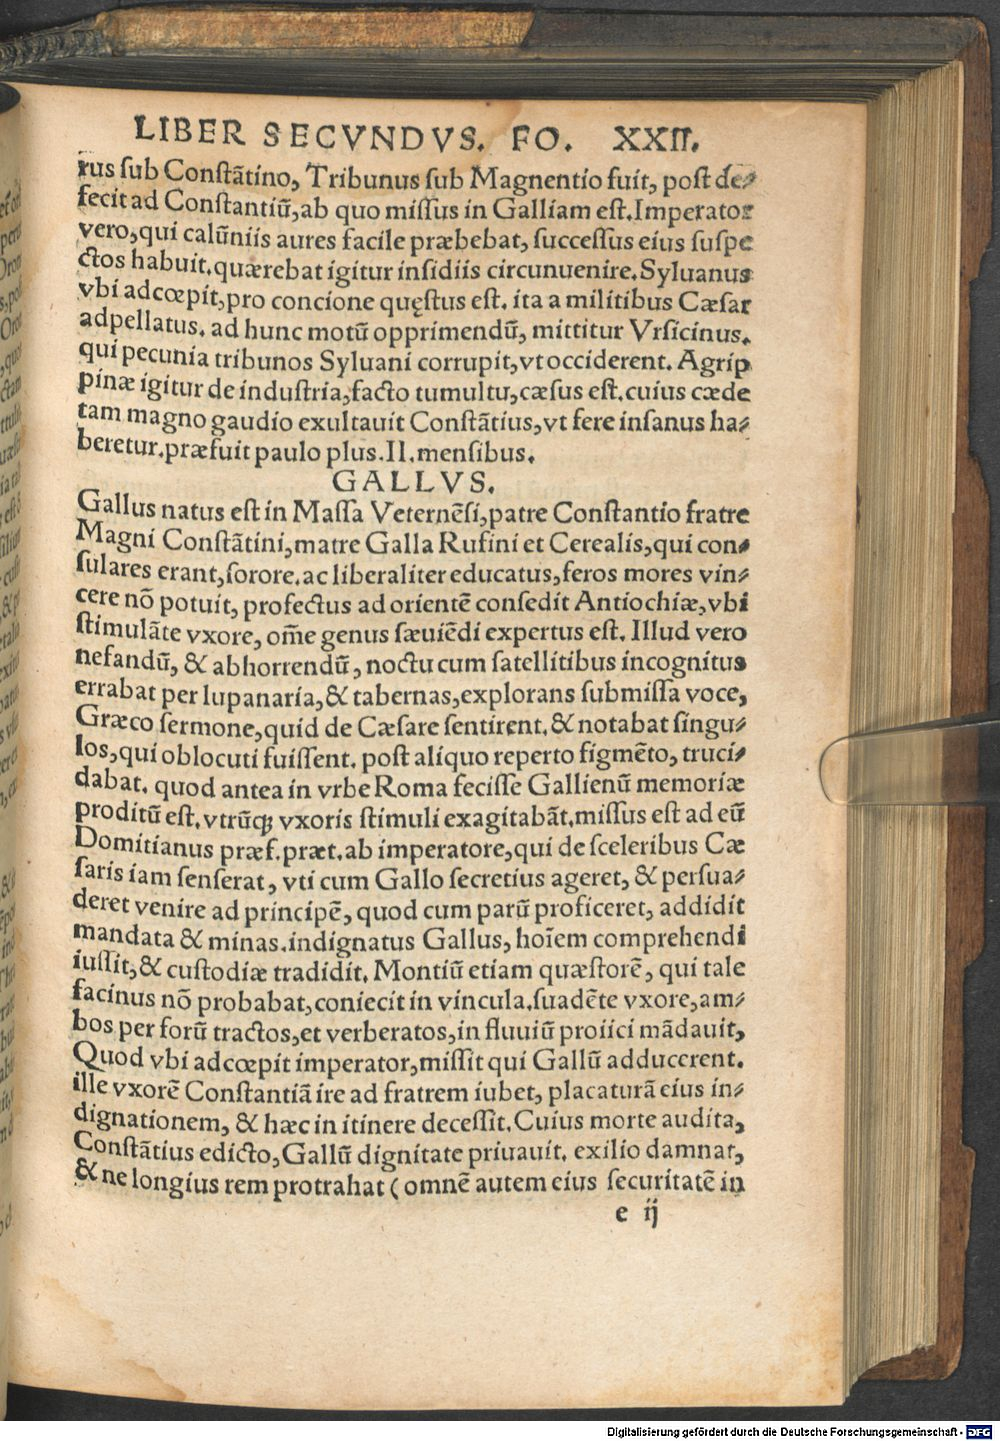 LIBER SECVNDVS. FO. XXII.
rus sub Constãtino, Tribunus sub Magnentio fuit, post de⸗
fecit ad Constantiũ, ab quo missus in Galliam est. Imperator
vero, qui calũniis aures facile præbebat, successus eius suspe
ctos habuit. quærebat igitur insidiis circunuenire. Syluanus
vbi adcœpit, pro concione quęstus est. ita a militibus Cæsar
adpellatus. ad hunc motũ opprimendũ, mittitur Vrsicinus.
qui pecunia tribunos Syluani corrupit, vt occiderent. Agrip
pinæ igitur de industria, facto tumultu, cæsus est. cuius cæde
tam magno gaudio exultauit Constãtius, vt fere insanus ha⸗
beretur. præfuit paulo plus. II. mensibus.
GALLVS.
Gallus natus est in Massa Veternẽsi, patre Constantio fratre
Magni Constãtini, matre Galla Rufini et Cerealis, qui con⸗
sulares erant, sorore. ac liberaliter educatus, feros mores vin⸗
cere nõ potuit, profectus ad orientẽ consedit Antiochiæ, vbi
stimulãte vxore, om̃e genus sæuiẽdi expertus est. Illud vero
nefandũ, & abhorrendũ, noctu cum satellitibus incognitus
errabat per lupanaria, & tabernas, explorans submissa voce,
Græco sermone, quid de Cæsare sentirent. & notabat singu⸗
los, qui oblocuti fuissent. post aliquo reperto figmẽto, truci⸗
dabat. quod antea in vrbe Roma fecisse Gallienũ memoriæ
proditũ est. vtrũqꝫ vxoris stimuli exagitabãt. missus est ad eũ
Domitianus præf. præt. ab imperatore, qui de sceleribus Cæ
saris iam senserat, vti cum Gallo secretius ageret, & persua⸗
deret venire ad principẽ, quod cum parũ proficeret, addidit
mandata & minas. indignatus Gallus, hoĩem comprehendi
iussit, & custodiæ tradidit. Montiũ etiam quæstorẽ, qui tale
facinus nõ probabat, coniecit in vincula. suadẽte vxore, am⸗
bos per forũ tractos, et verberatos, in fluuiũ proiici mãdauit,
Quod vbi adcœpit imperator, missit qui Gallũ adducerent.
ille vxorẽ Constantiã ire ad fratrem iubet, placaturã eius in⸗
dignationem, & hæc in itinere decessit. Cuius morte audita,
Constãtius edicto, Gallũ dignitate priuauit. exilio damnat,
& ne longius rem protrahat ( omnẽ autem eius securitatẽ in
e ij
Digitalisierung gefördert durch die Deutsche Forschungsgemeinschaft - DFG